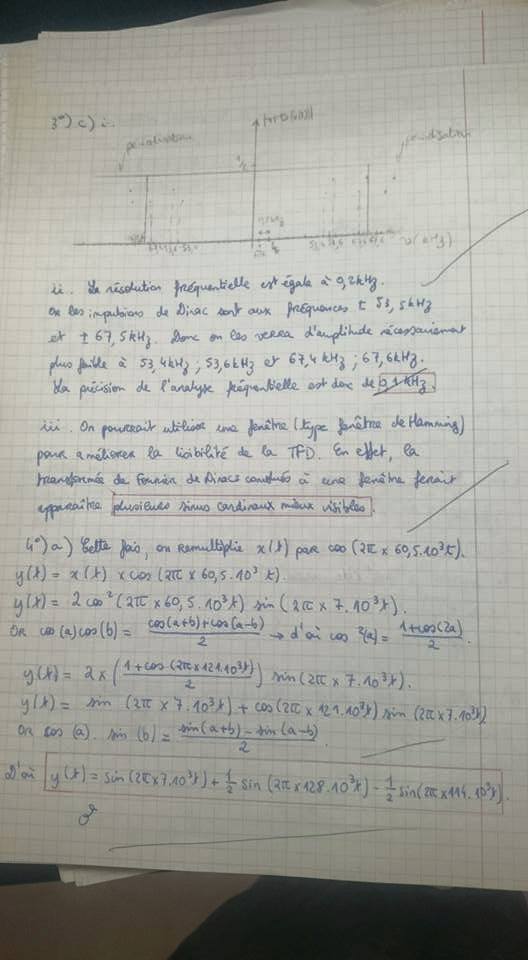 3°) c) i.
périodisation
1/2
53,4
ν(kHz)
ii. La résolution fréquentielle est égale à 0,2kHz.
Or les impulsions de Dirac sont aux fréquences ± 53,5kHz
et ± 67,5kHz. Donc on les verra d'amplitude nécessairement
plus faible à 53,4kHz ; 53,6kHz et 67,4kHz ; 67,6kHz.
La précision de l'analyse fréquentielle est donc de 0,1kHz.
iii. On pourrait utiliser une fenêtre (type fenêtre de Hamming)
pour améliorer la lisibilité de la TFD. En effet, la
transformée de Fourier de Diracs convolués à une fenêtre ferait
apparaître plusieurs sinus cardinaux mieux visibles.
4°) a) Cette fois, on remultiplie x(t) par cos(2π × 60,5.10³t).
y(t) = x(t) × cos(2π × 60,5.10³ t).
y(t) = 2 cos²(2π × 60,5.10³t) sin(2π × 7.10³t).
Or cos(a)cos(b) = (cos(a+b)+cos(a-b))/2 → d'où cos²(a) = (1+cos(2a))/2.
y(t) = 2 × ((1+cos(2π×121.10³t))/2) sin(2π × 7.10³t).
y(t) = sin(2π × 7.10³t) + cos(2π × 121.10³t) sin(2π×7.10³t)
Or cos(a). sin(b) = (sin(a+b) - sin(a-b))/2
D'où y(t) = sin(2π×7.10³t) + 1/2 sin(2π×128.10³t) - 1/2 sin(2π×114.10³t).